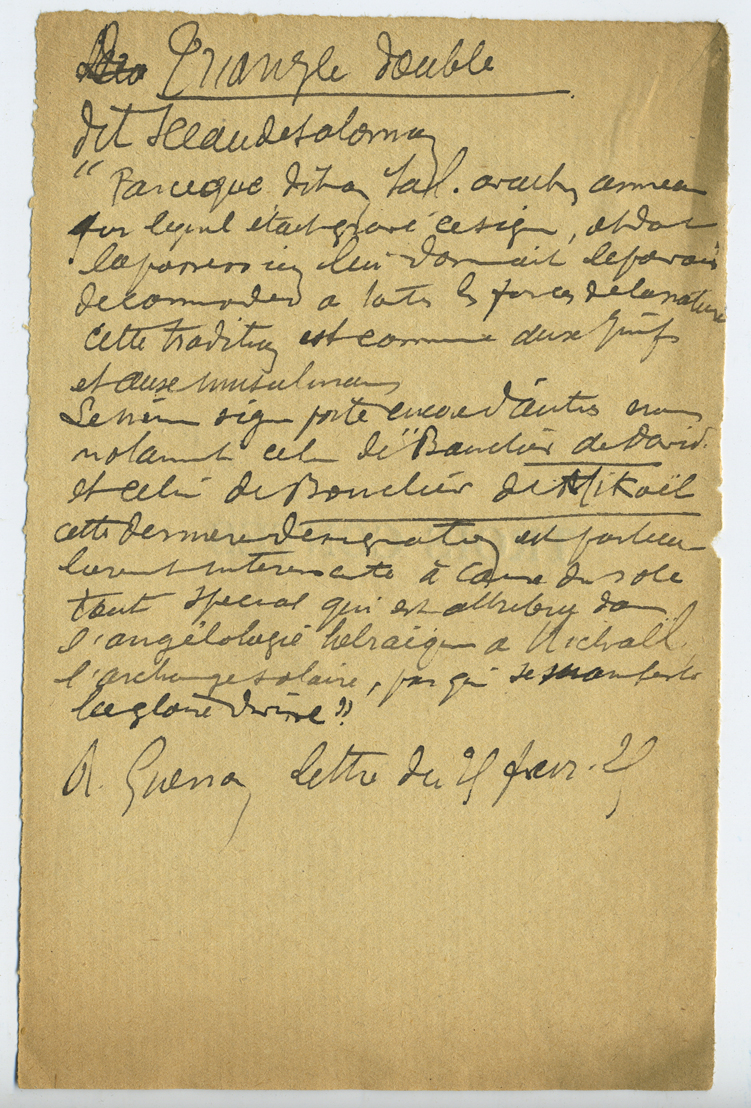 Triangle double
dit Sceau de Salomon
" Parce que, dit-on, Sal. avait un anneau
sur lequel était gravé ce signe, et dont
la possession lui donnait le pouvoir
de commander à toutes les forces de la nature
Cette tradition est commune aux Juifs
et aux musulmans
Le même signe porte encore d'autres noms
notamment celui de "Bouclier de David
et celui de Bouclier de Mikaël
cette dernière désignation est particu
lièrement intéressante à cause du role
tout special qui est attribué dans
l'angélologie hebraique a Michaël,
l'archange solaire, par qui se manifeste
la gloire divine".
R. Guenon lettre du 25 fevr. 25